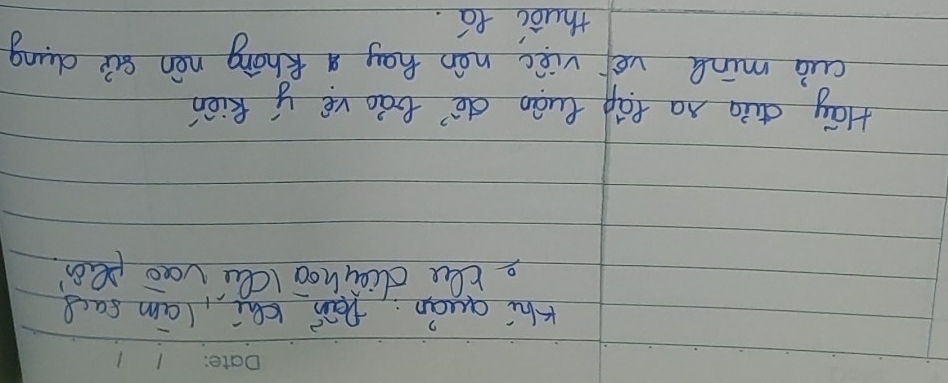 Date: / /
Khí quản: Dẫn khí, làm sạch
điều hoà khí vào phổi
Hãy đưa ra lập luận để bảo vệ ý kiến
của mình về việc nên hay không nên sử dụng
thuốc lá.